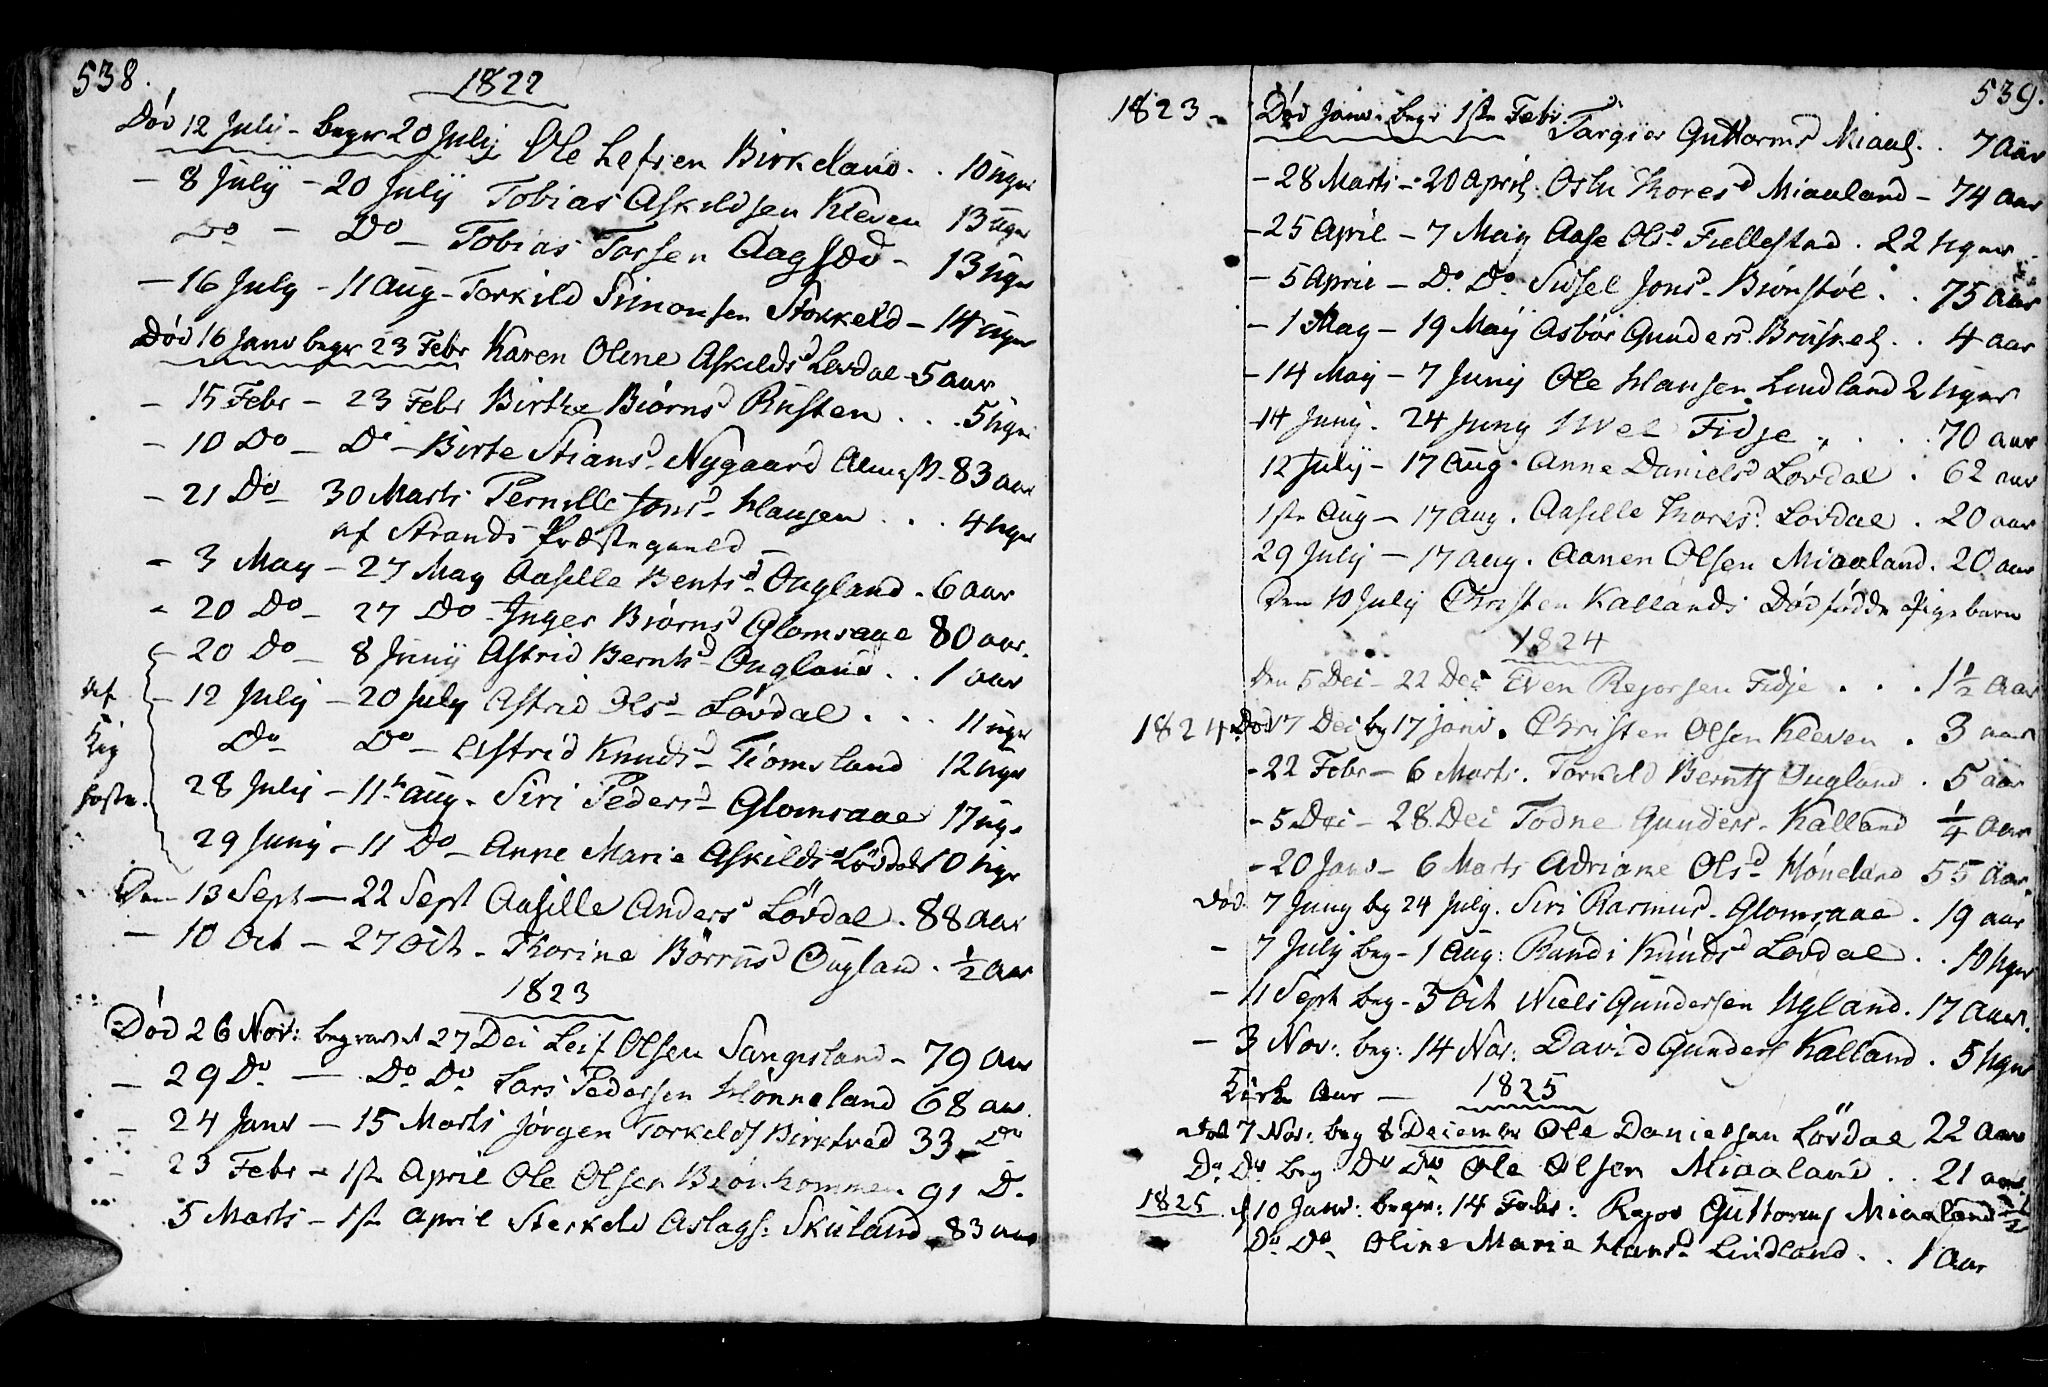 538.
1822
Død 12 Julij - begr 20 Julij Ole Lefsen Birkeland . . 10 uger
- 8 Julij - 20 Julij Tobias Askildsen Kleven 13 uger
Do - Do - Tobias Torsen Aagsæd - 13 uger
- 16 July - 11 Aug - Torkild Simonsen Stokkeld - 14 uger
Død 16 Janv begr 23 Febr Karen Oline Askildsd Løvdal - 5 aar
- 15 Febr - 23 Febr Birthe Biørnsd Rusten . . . 5 uger
- 10 Do - Do - Birte Stiansd Nygaard Almist - 83 aar
- 21 Do 30 Marts Pernille Jonsd Hausen . . . 4 uger
af Strands Præstegield -
- 3 May - 27 May Aasille Bentsd Ougland - 6 aar
- 20 Do - 27 Do Inger Biørnsd Glomsaae 80 aar.
- 20 Do - 8 Junij Astrid Berntsd Ougland . . 1 aar
- 12 Julij - 20 July Astrid Olsd Løvdal . . . 11 uger
af
Kig
hoste.
Do Do - Astrid Knudsd Tiomsland 12 uger
28 Julij - 11te Aug - Siri Pedersd Glomsaae 17 uge
29 Junij - 11 Do - Anne Marie Askildsd Løvdal 10 uger
Den 13 Sept - 22 Sept Aasille Andersd Løvdal . 88 aar
- 10 Oct - 27 Oct - Thorine Børrusd Ougland . ½ aar
1823
Død 26 Nov: begravet 27 Dec Leif Olsen Sangesland - 79 aar
- 29 Do - Do Do Lars Pedersen Hønneland 68 aar.
- 24 Janv - 15 Marts Jørgen Torkilds Birktved 33 Do
- 23 Febr - 1ste April Ole Olsen Biønkommen 91 D.
5 Marts - 1ste April Sterkeld Aslags: Skuland - 83 aar
539.
1823 - Død Janv: begr 1ste Febr. Targier Guttormsd Miaal. . 7 aar
- 28 Marts - 20 April Oslu Thoresd Miaaland - 74 aar
- 25 April - 7 Maij Aase Olsd Fiellestad . 22 uger
- 5 April - Do Do Sidsel Jonsd Biørnstøl . . 75 aar
- 1 May - 19 Maij Asbør Gunders. . . 4 aar
- 14 Maij - 7 Junij Ole Hansen Lindland 2 uger
14 Junij . 24 Junij Fidje . . . . 70 aar
12 Julij - 17 Aug . Anne Danielsd Løvdal . 62 aar
1ste Aug - 17 Aug . Aasille Thoresd Løvdal . 20 aar
29 Julij - 17 Aug . Aanen Olsen Miaaland . 20 aar
Den 10 Julij Christen Kallands Dødfødde Pigebarn
1824
Den 5 Dec - 22 Dec Even Rejorsen Fidje . . . 1½ aar
1824 Død 17 Dec bg 17 janv . Christen Olsen Kleven . 3 aar
- 22 Febr - 6 Marts . Torkild Bernts Ougland . 5 aar
- 5 Dec - 28 Dec Todne Gunders - Kalland ¼ aar
- 20 Janv - 6 Marts Adriane Olsd Høneland 55 aar
Død 7 Junij bg 24 July . Siri Rasmusd Glomsaae . 19 aar
- 7 Julij beg - 1 Aug: Randi Knudsd Løvdal . . 10 uger
- 11 Sept beg - 3 Oct Niels Gundersen Ugland . 17 aar.
- 3 Nov: beg: 14 Nov: David Gunders Kalland . 5 uger
Kirke Aar - 1825
død 7 Nov: beg 8 December Ole Danielsen Løvdal 22 aar
Do Do beg Do Do Ole Olsen Miaaland . . 21 aar
1825 d 10 Janv: begr: 14 Febr: Rejor Guttorms Miaaland ½
Do Do Oline Marie Hansd Lindland . . 1 aar